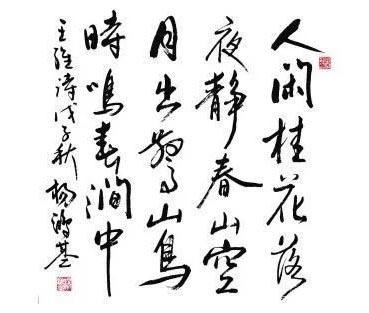 人閑桂花落
夜靜春山空
月出驚山鳥
時鳴春澗中
王維詩戊子秋楊鴻基